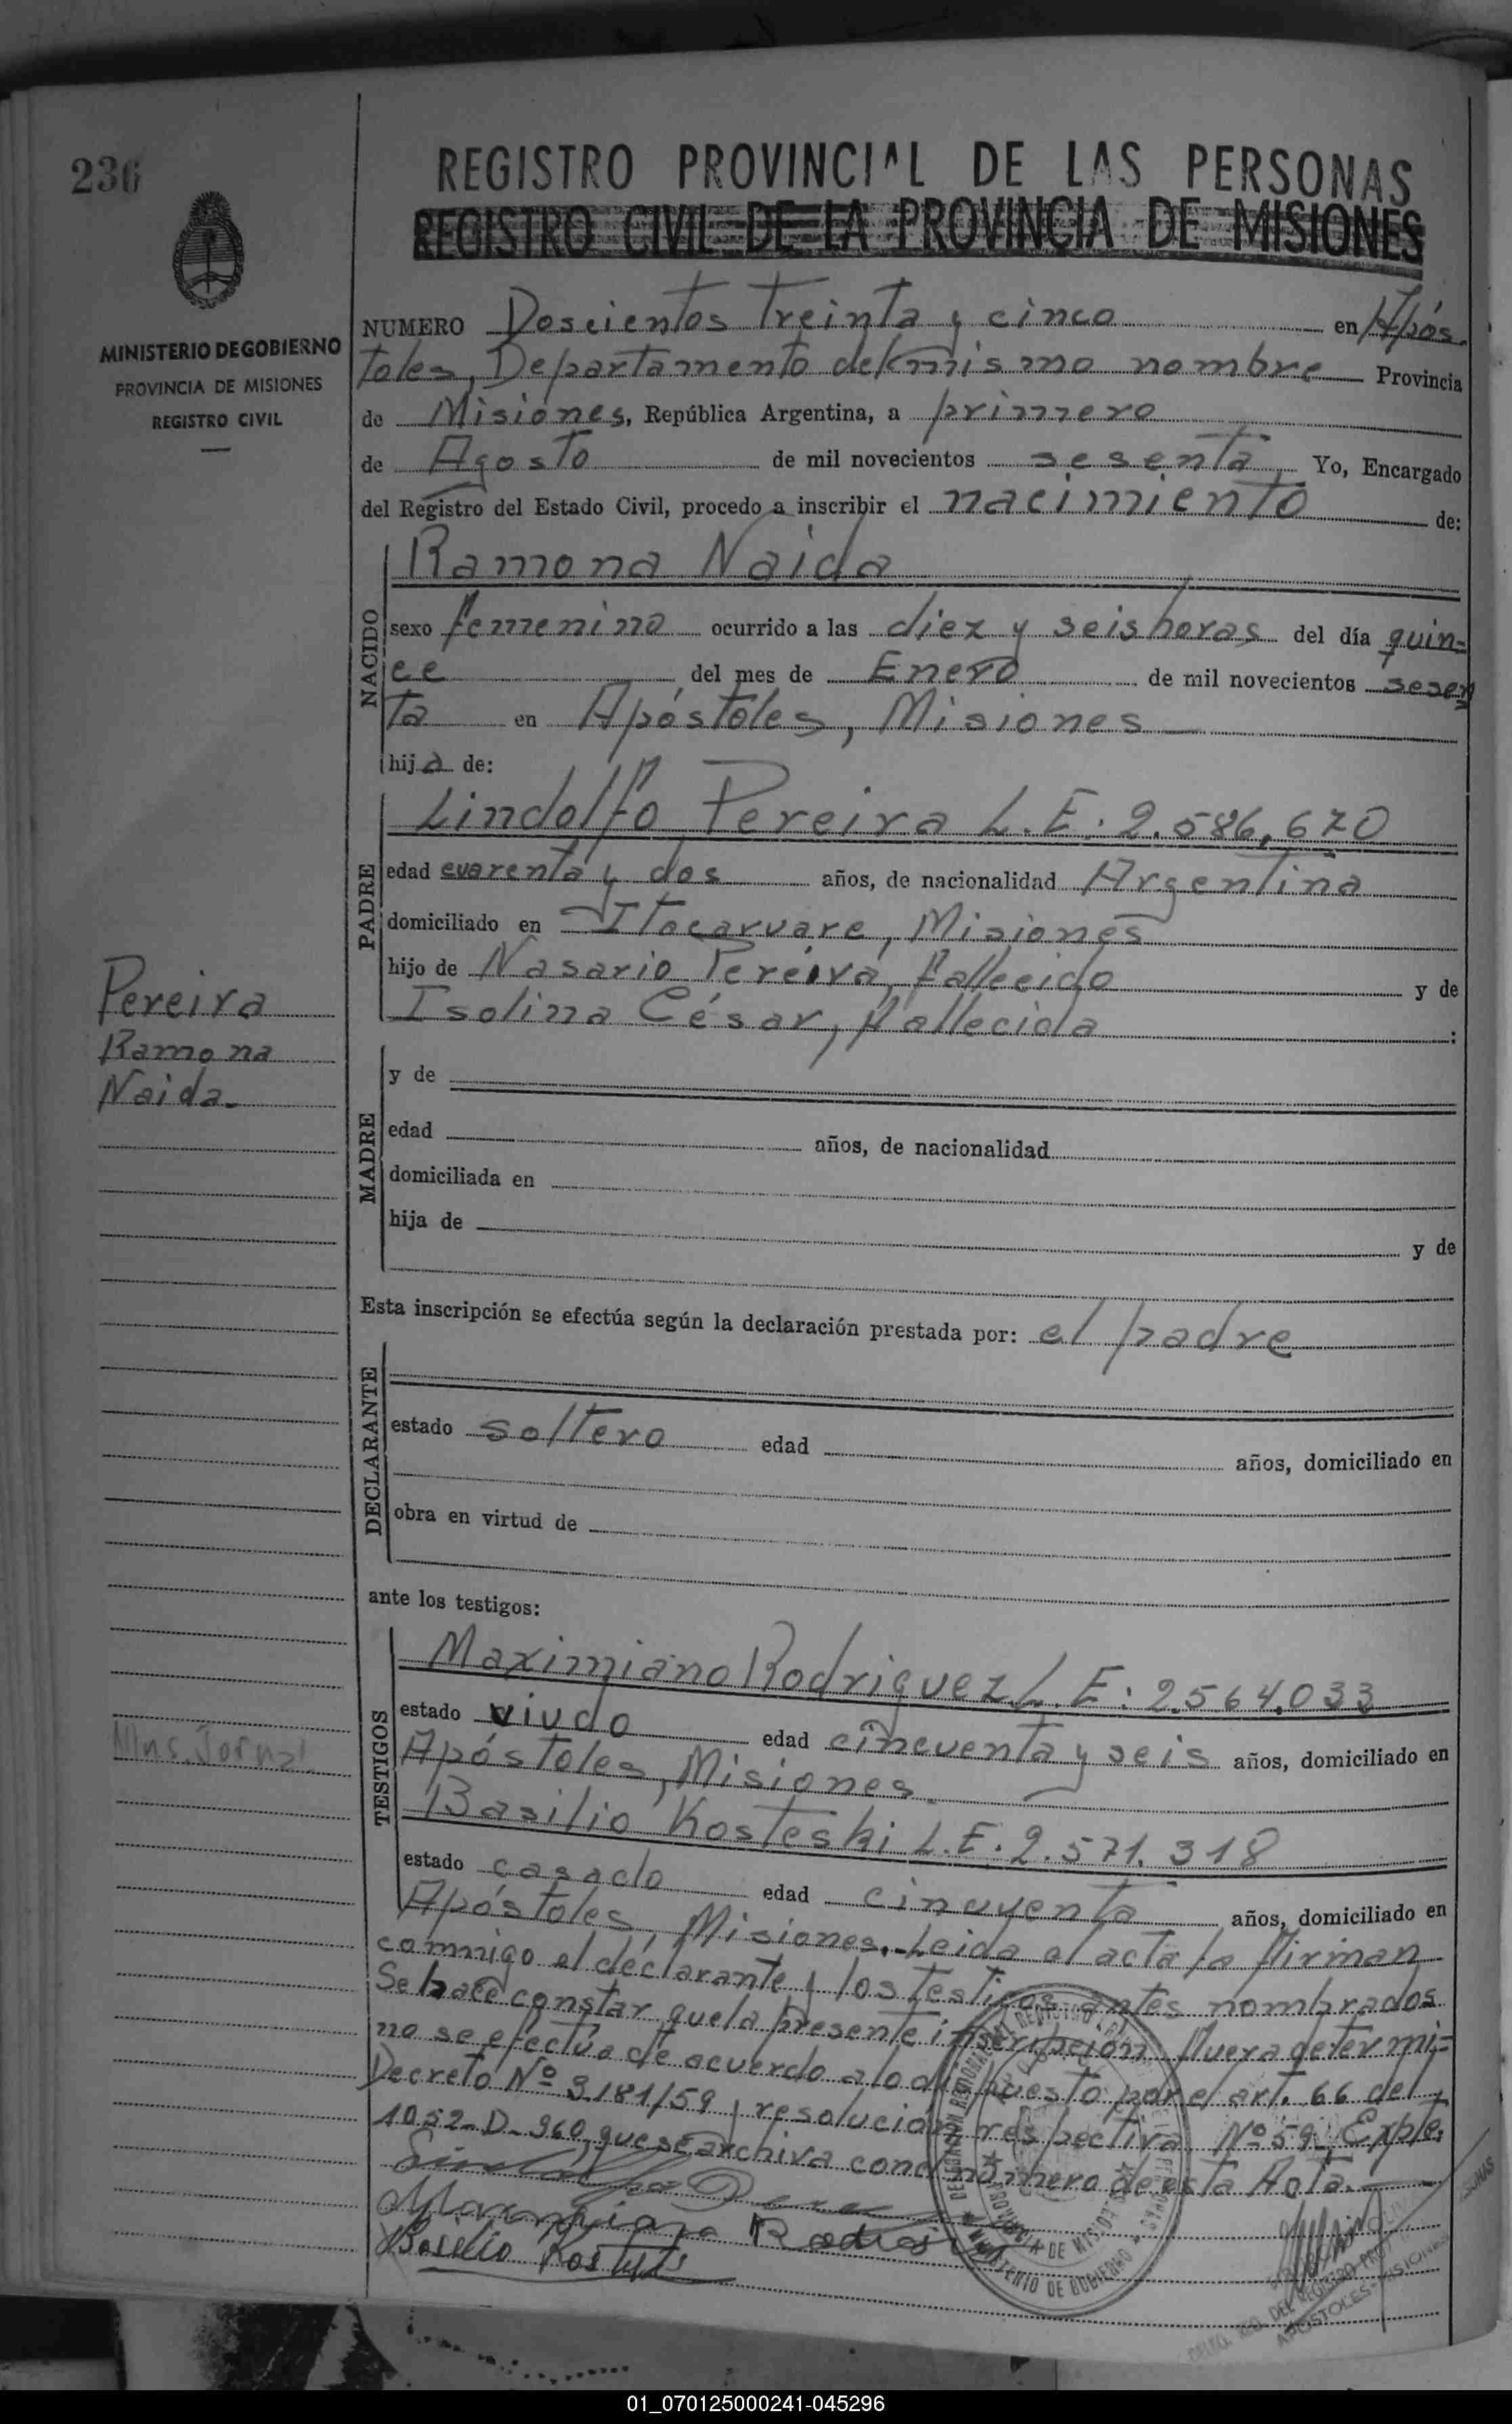 236
REGISTRO PROVINCIAL DE LAS PERSONAS
REGISTRO CIVIL DE LA PROVINCIA DE MISIONES
MINISTERIO DE GOBIERNO
PROVINCIA DE MISIONES
REGISTRO CIVIL
NUMERO Doscientos Treinta y cinco en Após
toles, Departamento del mismo nombre Provincia
de Misiones, República Argentina, a primero
de Agosto de mil novecientos sesenta, Yo, Encargado
del Registro del Estado Civil, procedo a inscribir el nacimiento de:
NACIDO
Ramona Naida
sexo femenino ocurrido a las diez y seis horas del día quin=
ce del mes de Enero de mil novecientos sesen
ta en Apóstoles, Misiones
hija de:
PADRE
Lindolfo Pereira L.E: 2.586,670
edad cuarenta y dos años, de nacionalidad Argentina
domiciliado en Itacaruare, Misiones
hijo de Nasario Pereira, fallecido y de
Isolina César, fallecida :
Pereira
Ramona
Naida.
MADRE
y de
edad años, de nacionalidad
domiciliada en
hija de y de
Esta inscripción se efectúa según la declaración prestada por: el padre
DECLARANTE
estado soltero edad años, domiciliado en
obra en virtud de
ante los testigos:
TESTIGOS
Maximiano Rodriguez L.E: 2.564,033
estado viudo edad cincuenta y seis años, domiciliado en
Apóstoles, Misiones.
Basilio Kosteski L.E. 2.571.318
estado casado edad cincuenta años, domiciliado en
Apóstoles, Misiones. Leida el acta la firman
conmigo el déclarante y los testigos antes nombrados
Se hace constar que la presente inscripción fuera de térmi=
no se efectúa de acuerdo a lo dispuesto por el art. 66 del
Decreto Nº 3181/59 y resolución respectiva Nº 59, Expte.
1052-D-960, que se archiva con el número de esta Acta.
Maximiano Rodri
Basilio
DELEGACION DEL REGISTRO
PROVINCIA DE MISIONES
MINISTERIO DE GOBIERNO
DELEG. REG. DEL REGISTRO PROV
APOSTOLES - MISIONES
01_070125000241-045296